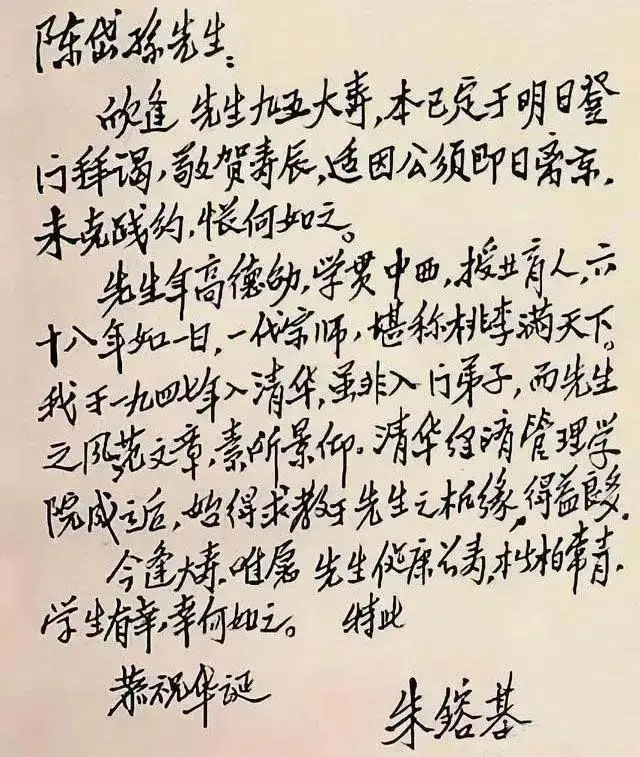 陈岱孙先生：
欣逢 先生九五大寿，本已定于明日登
门拜谒，敬贺寿辰，适因公须即日离京，
未克践约，怅何如之。
先生年高德劭，学贯中西，授业育人，六
十八年如一日，一代宗师，堪称桃李满天下。
我于一九四七年入清华，虽非入门弟子，而先生
之风范文章，素所景仰。清华经济管理学
院成立后，始得求教于先生之机缘，得益良多。
今逢大寿，唯愿 先生健康长寿，松柏常青，
学生有幸，幸何如之。 特此
恭祝华诞
朱镕基